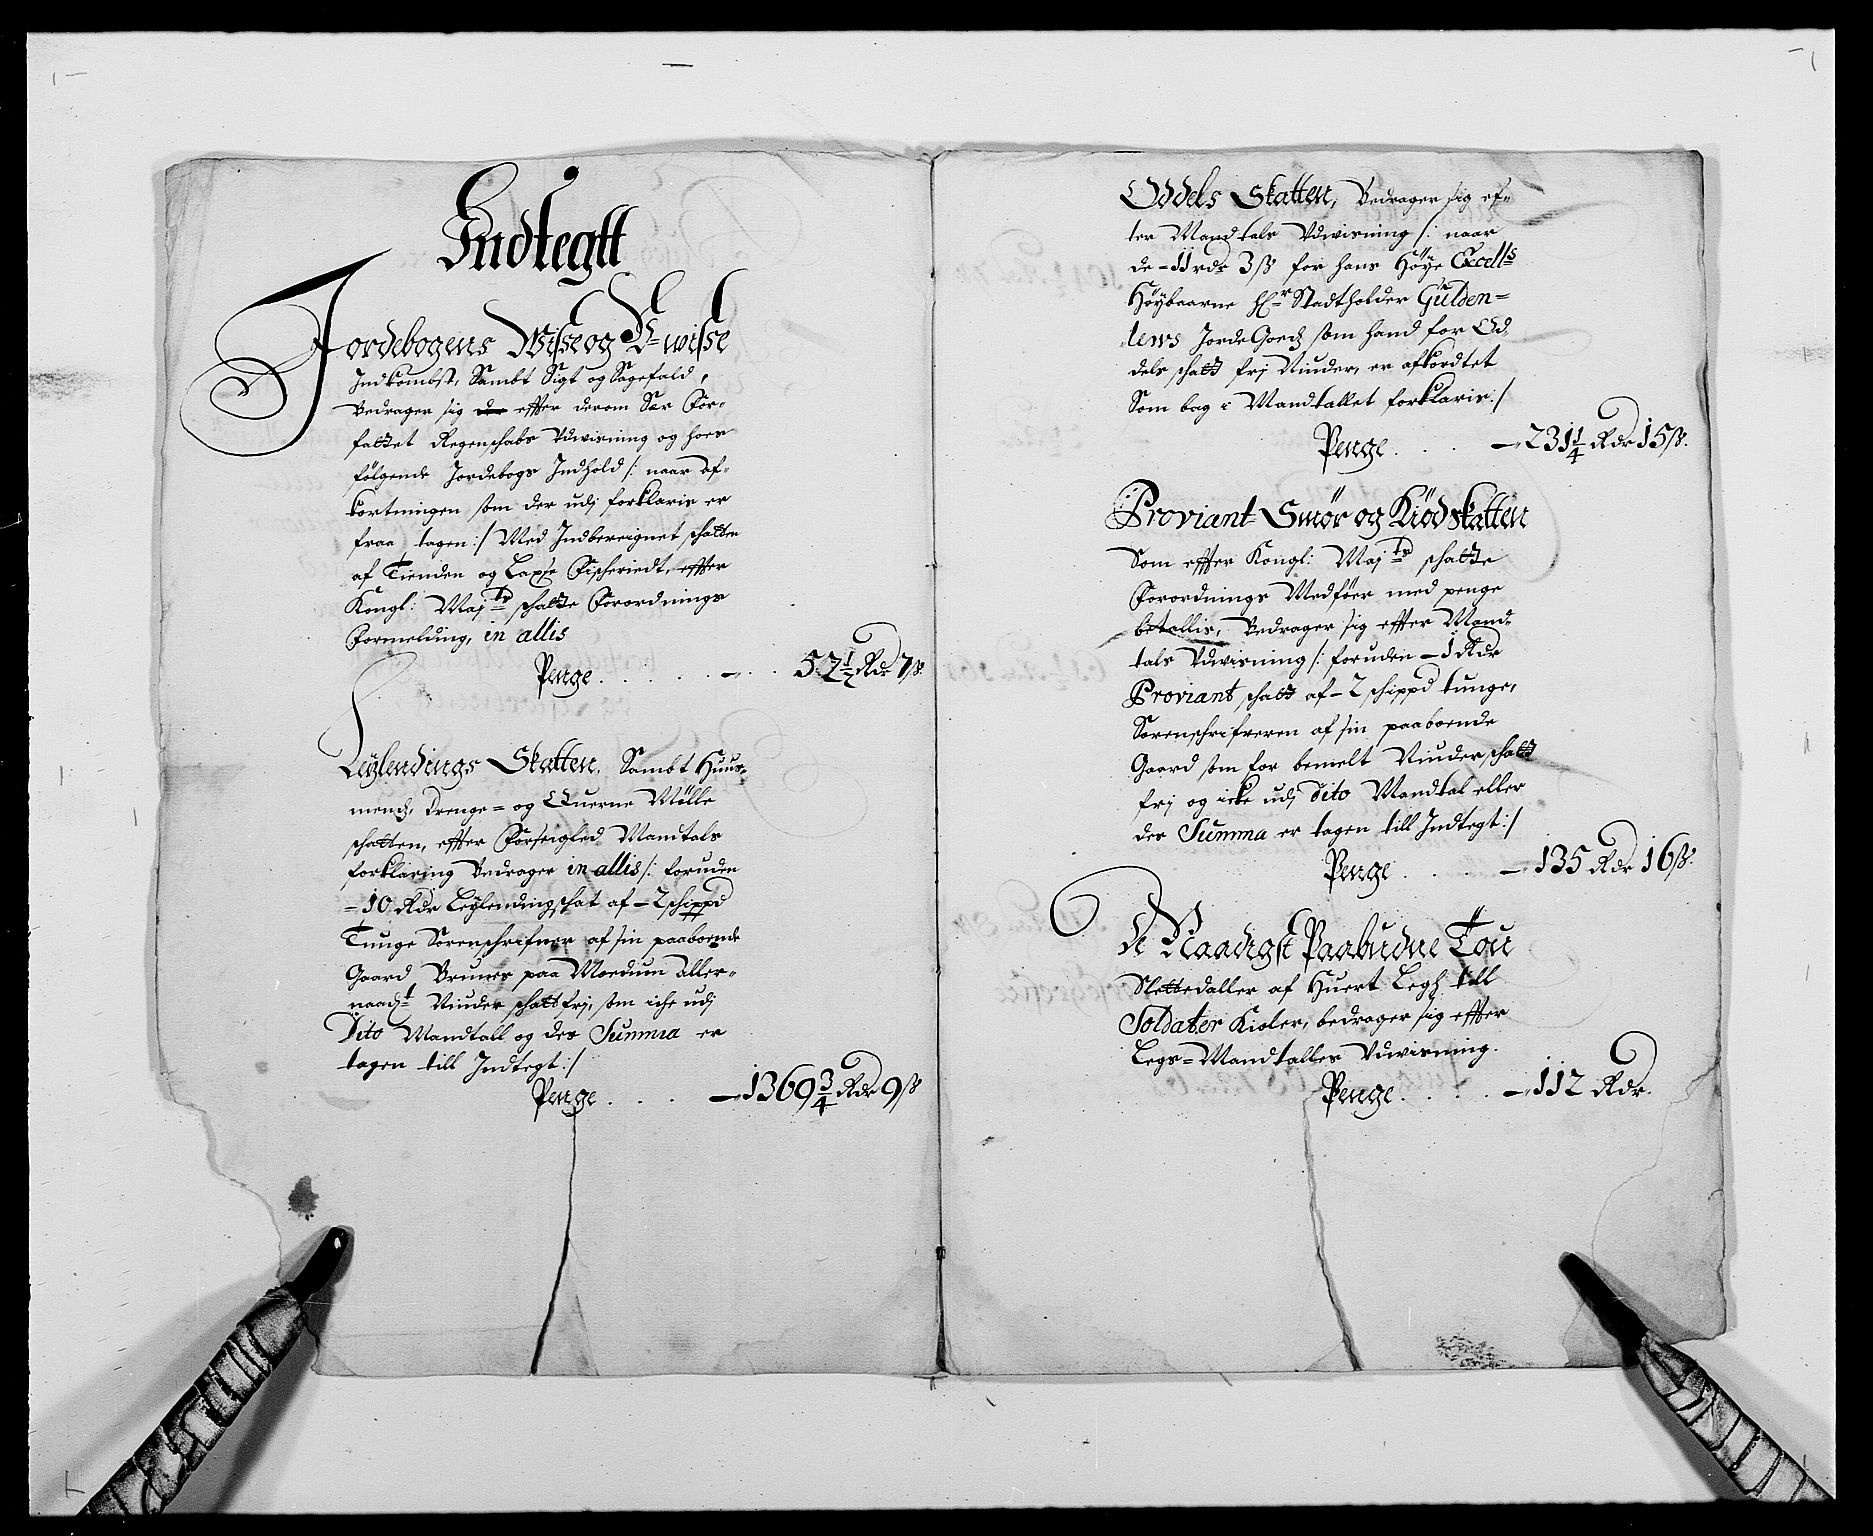 Indtegtt
Jordebogens Wisse og U-wisse
Indkombst, Sambt Sigt og Sagefald,
Bedrager sig effter derom Sær For-
fattet Regenschabs Udwisning og hoes
følgende Jordebogs Indhold /: naar af-
kortningen som der udj forklaris er
fraa tagen :/ Med Indbereignet schatten
af Tienden og Laxse Fischeriedt, effter
Kongl: Maj.ts schatte Forordnings
Formelding, in allis
Penge . . . . . 52 1/2 Rdr 7 ß.
Leylendings Skatten, Sambt Huus-
mends, Drenge= og Querne Mølle
schatten, effter Forseigled Mandtals
forklaring Bedrager in allis /: foruden
- 10 Rdr Leylendingschat af - 2 schippd
Tunge Sorenschrifner af sin paaboende
Gaard Brunes paa Moedum aller-
naadt Niuder schatt frj, som iche udj
Dito Mandtall og des Summa er
tagen till Indtegt :/
Penge . . . . 1369 3/4 Rdr 9 ß
Oddels Skatten, Bedrager sig ef-
ter Mandtals Udwisning /: naar
de - 11 rdr 3 ß for hans Høye Excells
Høybaarne Hr Stadtholder Gülden=
lews JordeGoeds som hand for Od-
dels schatt frj Niuder, er afkordtet
Som bag i Mandtallet forklaris :/
Penge . . . 231 1/4 Rdr 15 ß.
Proviant Smør og Kiødskatten
Som effter Kongl: Maj.ts schatte
Forordnings Medføer med penge
betallis, Bedrager sig effter Mand-
tals Udwisning /: foruden - 1 Rdr
Proviant schatt af - 2 schippd tunge,
Sorenschrifveren af sin paaboende
Gaard som for bemelt Niuder schatt
frj og icke udj Dito Mandtal eller
des Summa er tagen till Indtegt :/
Penge . . . . 135 Rdr 16 ß.
De Naadigst Paabudne Tou
Slettedaller af Huert Legh till
Soldater Kioler, bedrager sig effter
Legs=Mandtalles Udwisning.
Penge . . . . 112 Rdr.